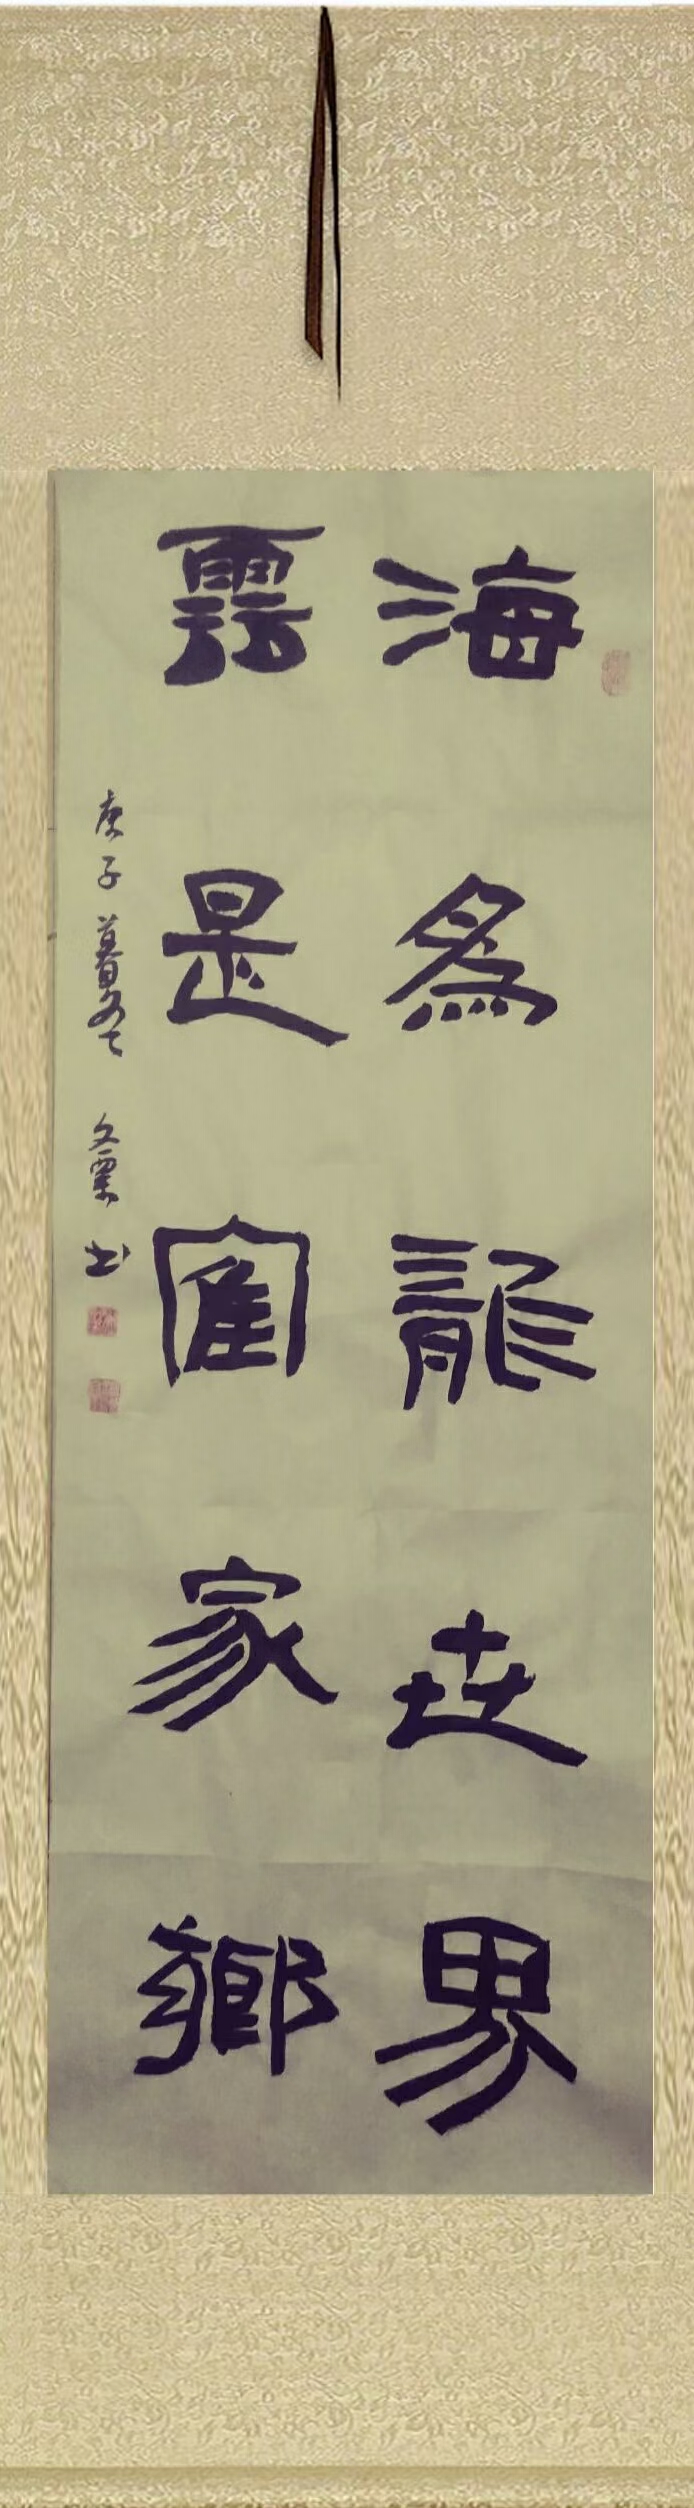 海為龍世界
雲是寉家鄉
庚子暮冬 文栗書